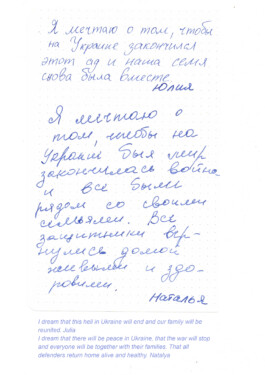 Я мечтаю о том, чтобы
на Украине закончился
этот ад и наша семя
снова была вместе.
Юлия
Я мечтаю о
том, чтобы на
Украине был мир
закончилась война
и все были
рядом со своими
семьями. Все
защитники вер-
нулись домой
живыми и здо-
ровыми.
Наталья
I dream that this hell in Ukraine will end and our family will be
reunited. Julia
I dream that there will be peace in Ukraine, that the war will stop
and everyone will be together with their families. That all
defenders return home alive and healthy. Natalya